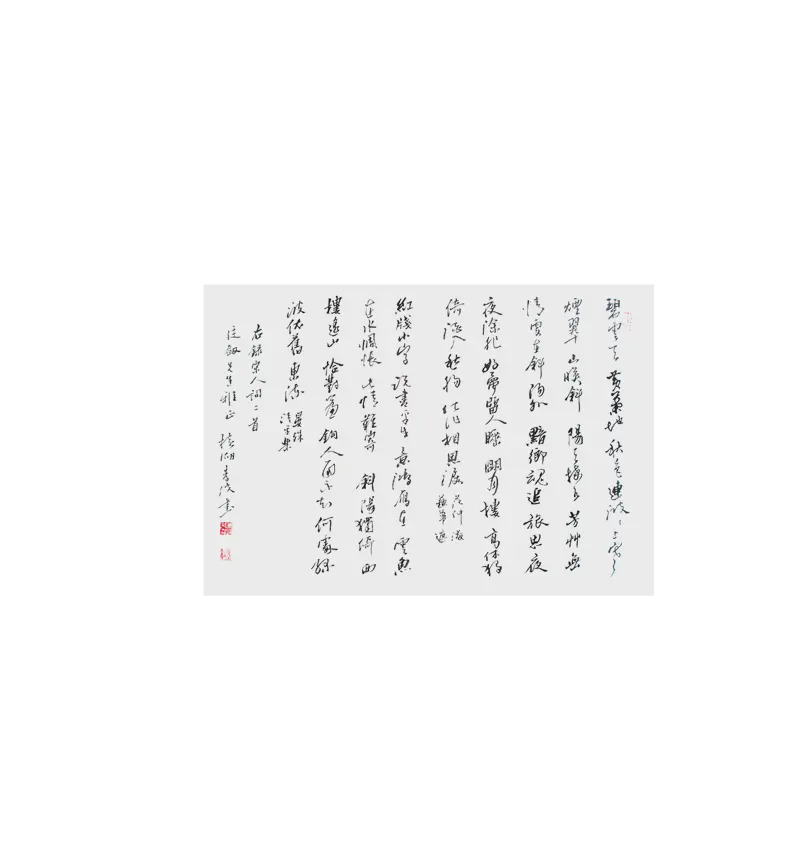 碧雲天黃葉地秋色連波波上寒
煙翠山暎斜陽天接水芳艸無
情更在斜陽外黯鄉魂追旅思夜
夜除非好夢留人睡明月樓高休獨
倚酒入愁腸化作相思淚范仲淹
蘇幕遮
紅牋小字說盡平生意鴻雁在雲魚
在水惆悵此情難寄斜陽獨倚西
樓遙山恰對簾鉤人面不知何處綠
波依舊東流晏殊
清平樂
右錄宋人詞二首
先生雅正
書